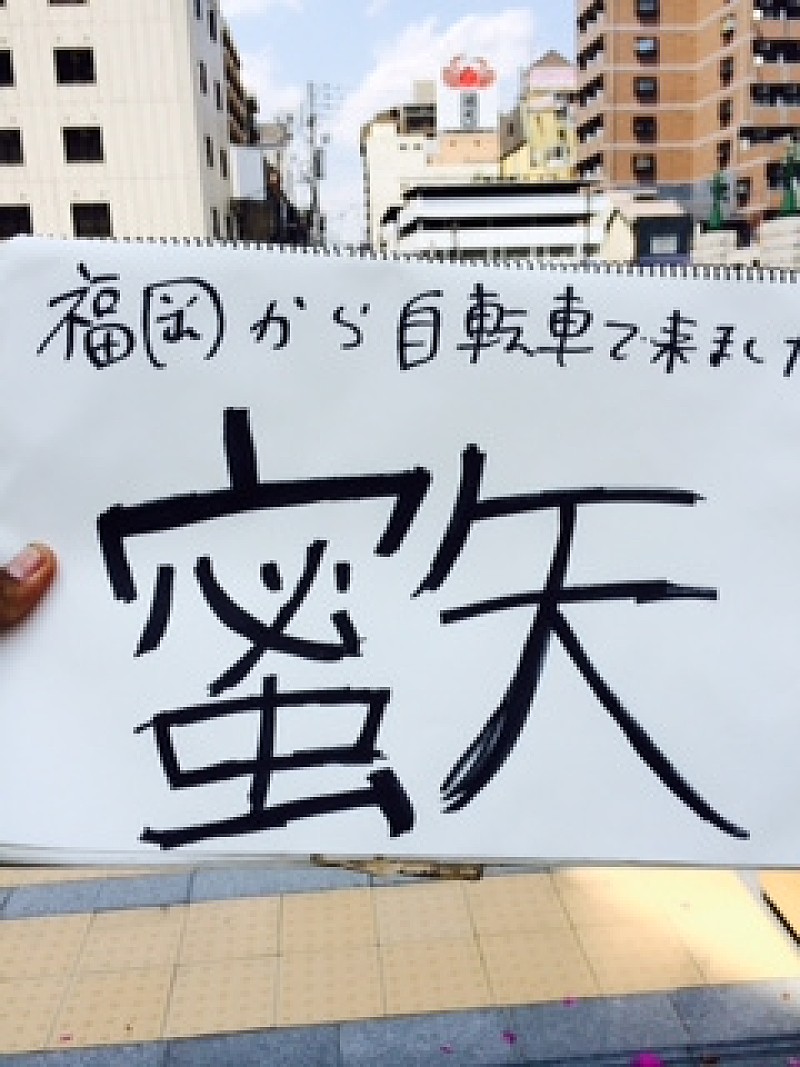 福岡から自転車で来ました
蜜矢